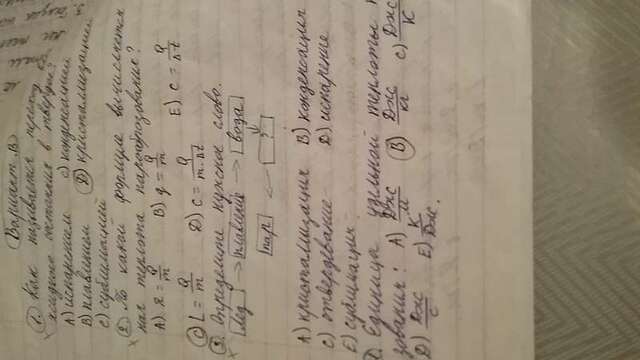 Вариант В
1. Как называется переход
жидкого состояния в твердое:
А) испарением С) конденсацией
В) плавлением D) кристаллизацией
С) сублимацией
2. По какой формуле вычисляется
теплота парообразования?
А) λ = Q/m В) q = Q/m
Е) с = Q/Δt
С) L = Q/m D) с = Q/m·Δt
3. Определите нужное слово.
лёд → плавление → вода
пар ← ?
А) кристаллизация В) конденсация
С) отвердевание D) испарение
Е) сублимация
Единица удельной теплоты
зования: А) Дж/м В) Дж/кг С) Дж/К
D) Дж/с Е) К/Дж.